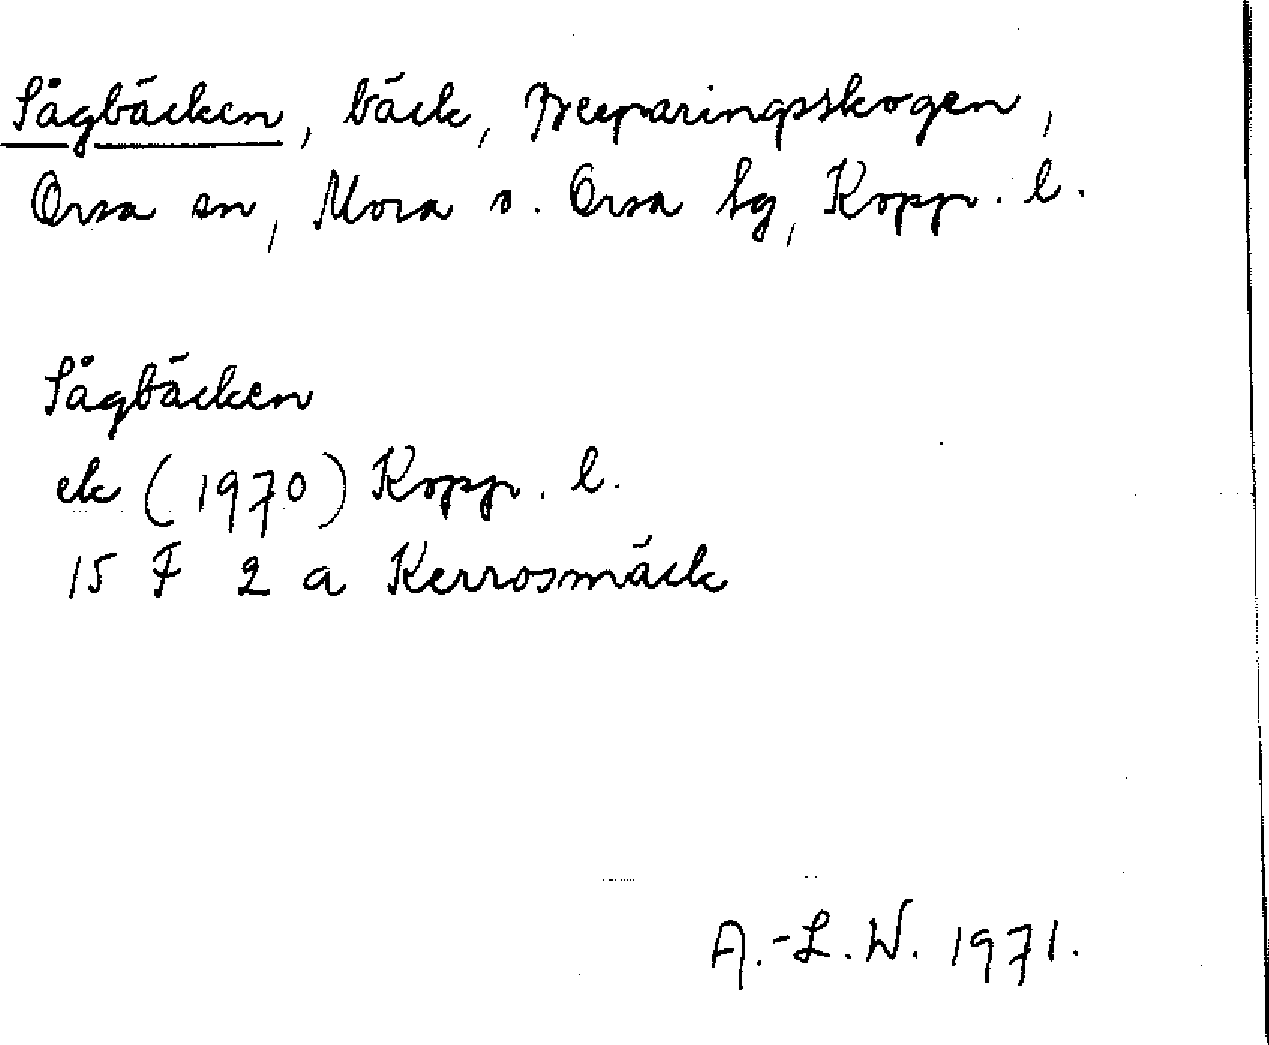 Sågbäcken, bäck, Besparingsskogen,
Orsa sn, Mora o. Orsa tg, Kopp. l.
Sågbäcken
ek (1970) Kopp. l.
15 F 2 a Kerrosmäck
A.-L.W. 1971.